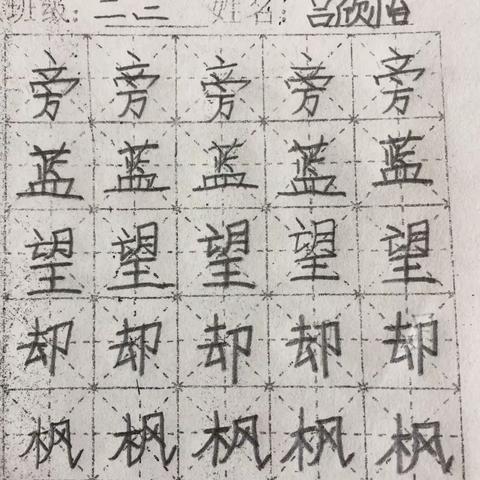 班级：二二 姓名：吕欣怡
旁旁旁旁旁
蓝蓝蓝蓝蓝
望望望望望
却却却却却
枫枫枫枫枫